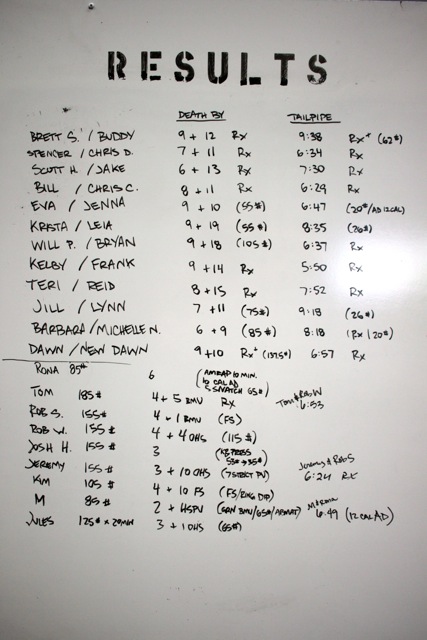 RESULTS
DEATH BY TAILPIPE
BRETT S. / BUDDY 9 + 12 Rx 9:38 Rx+ (62#)
SPENCER / CHRIS D. 7 + 11 Rx 6:34 Rx
SCOTT H. / JAKE 6 + 13 Rx 7:30 Rx
BILL / CHRIS C. 8 + 11 Rx 6:29 Rx
EVA / JENNA 9 + 10 (55#) 6:47 (20#/AD 12CAL)
KRISTA / LEIA 9 + 19 (55#) 8:35 (26#)
WILL P. / BRYAN 9 + 18 (105#) 6:37 Rx
KELBY / FRANK 9 + 14 Rx 5:50 Rx
TERI / REID 8 + 15 Rx 7:52 Rx
JILL / LYNN 7 + 11 (75#) 9:18 (26#)
BARBARA / MICHELLE N. 6 + 9 (85#) 8:18 (Rx / 20#)
DAWN / NEW DAWN 9 + 10 Rx+ (137.5#) 6:57 Rx
RONA 85# 6 (AMRAP 10 MIN.
10 CAL AD
5 SNATCH 65#)
TOM 185# 4 + 5 BMU Rx Tom & Rob W
6:53
ROB S. 155# 4 + 1 BMU (FS)
ROB W. 155# 4 + 4 OHS (115#)
JOSH H. 155# 3 (KB PRESS
53# → 35#)
JEREMY 155# 3 + 10 OHS (7 STRICT PU) Jeremy & Rob S
6:24 RX
KIM 105# 4 + 10 FS (FS/RING DIP)
M 85# 2 + HSPU (BAN BMU/65#/ABMAT) M & Rona
6:49 (12 CAL AD)
JULES 125# x 20 MIN 3 + 1 OHS (65#)